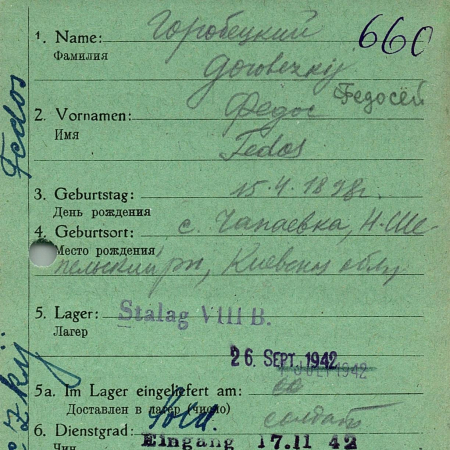 660
1. Name: Горобецкий
Фамилия
Gorobezkij
2. Vornamen: Федос Федосей
Имя
Fedos
Fedos
3. Geburtstag: 15.4.1898г.
День рождения
4. Geburtsort: с. Чапаевка, Н-Ше-
Место рождения
пельский рн, Киевской обл.
5. Lager: Stalag VIII B.
Лагер
26. SEPT. 1942
5a. Im Lager eingeliefert am:
Доставлен в лагер (число)
Sold.
6. Dienstgrad: солдат
Чин
Eingang 17.11 42